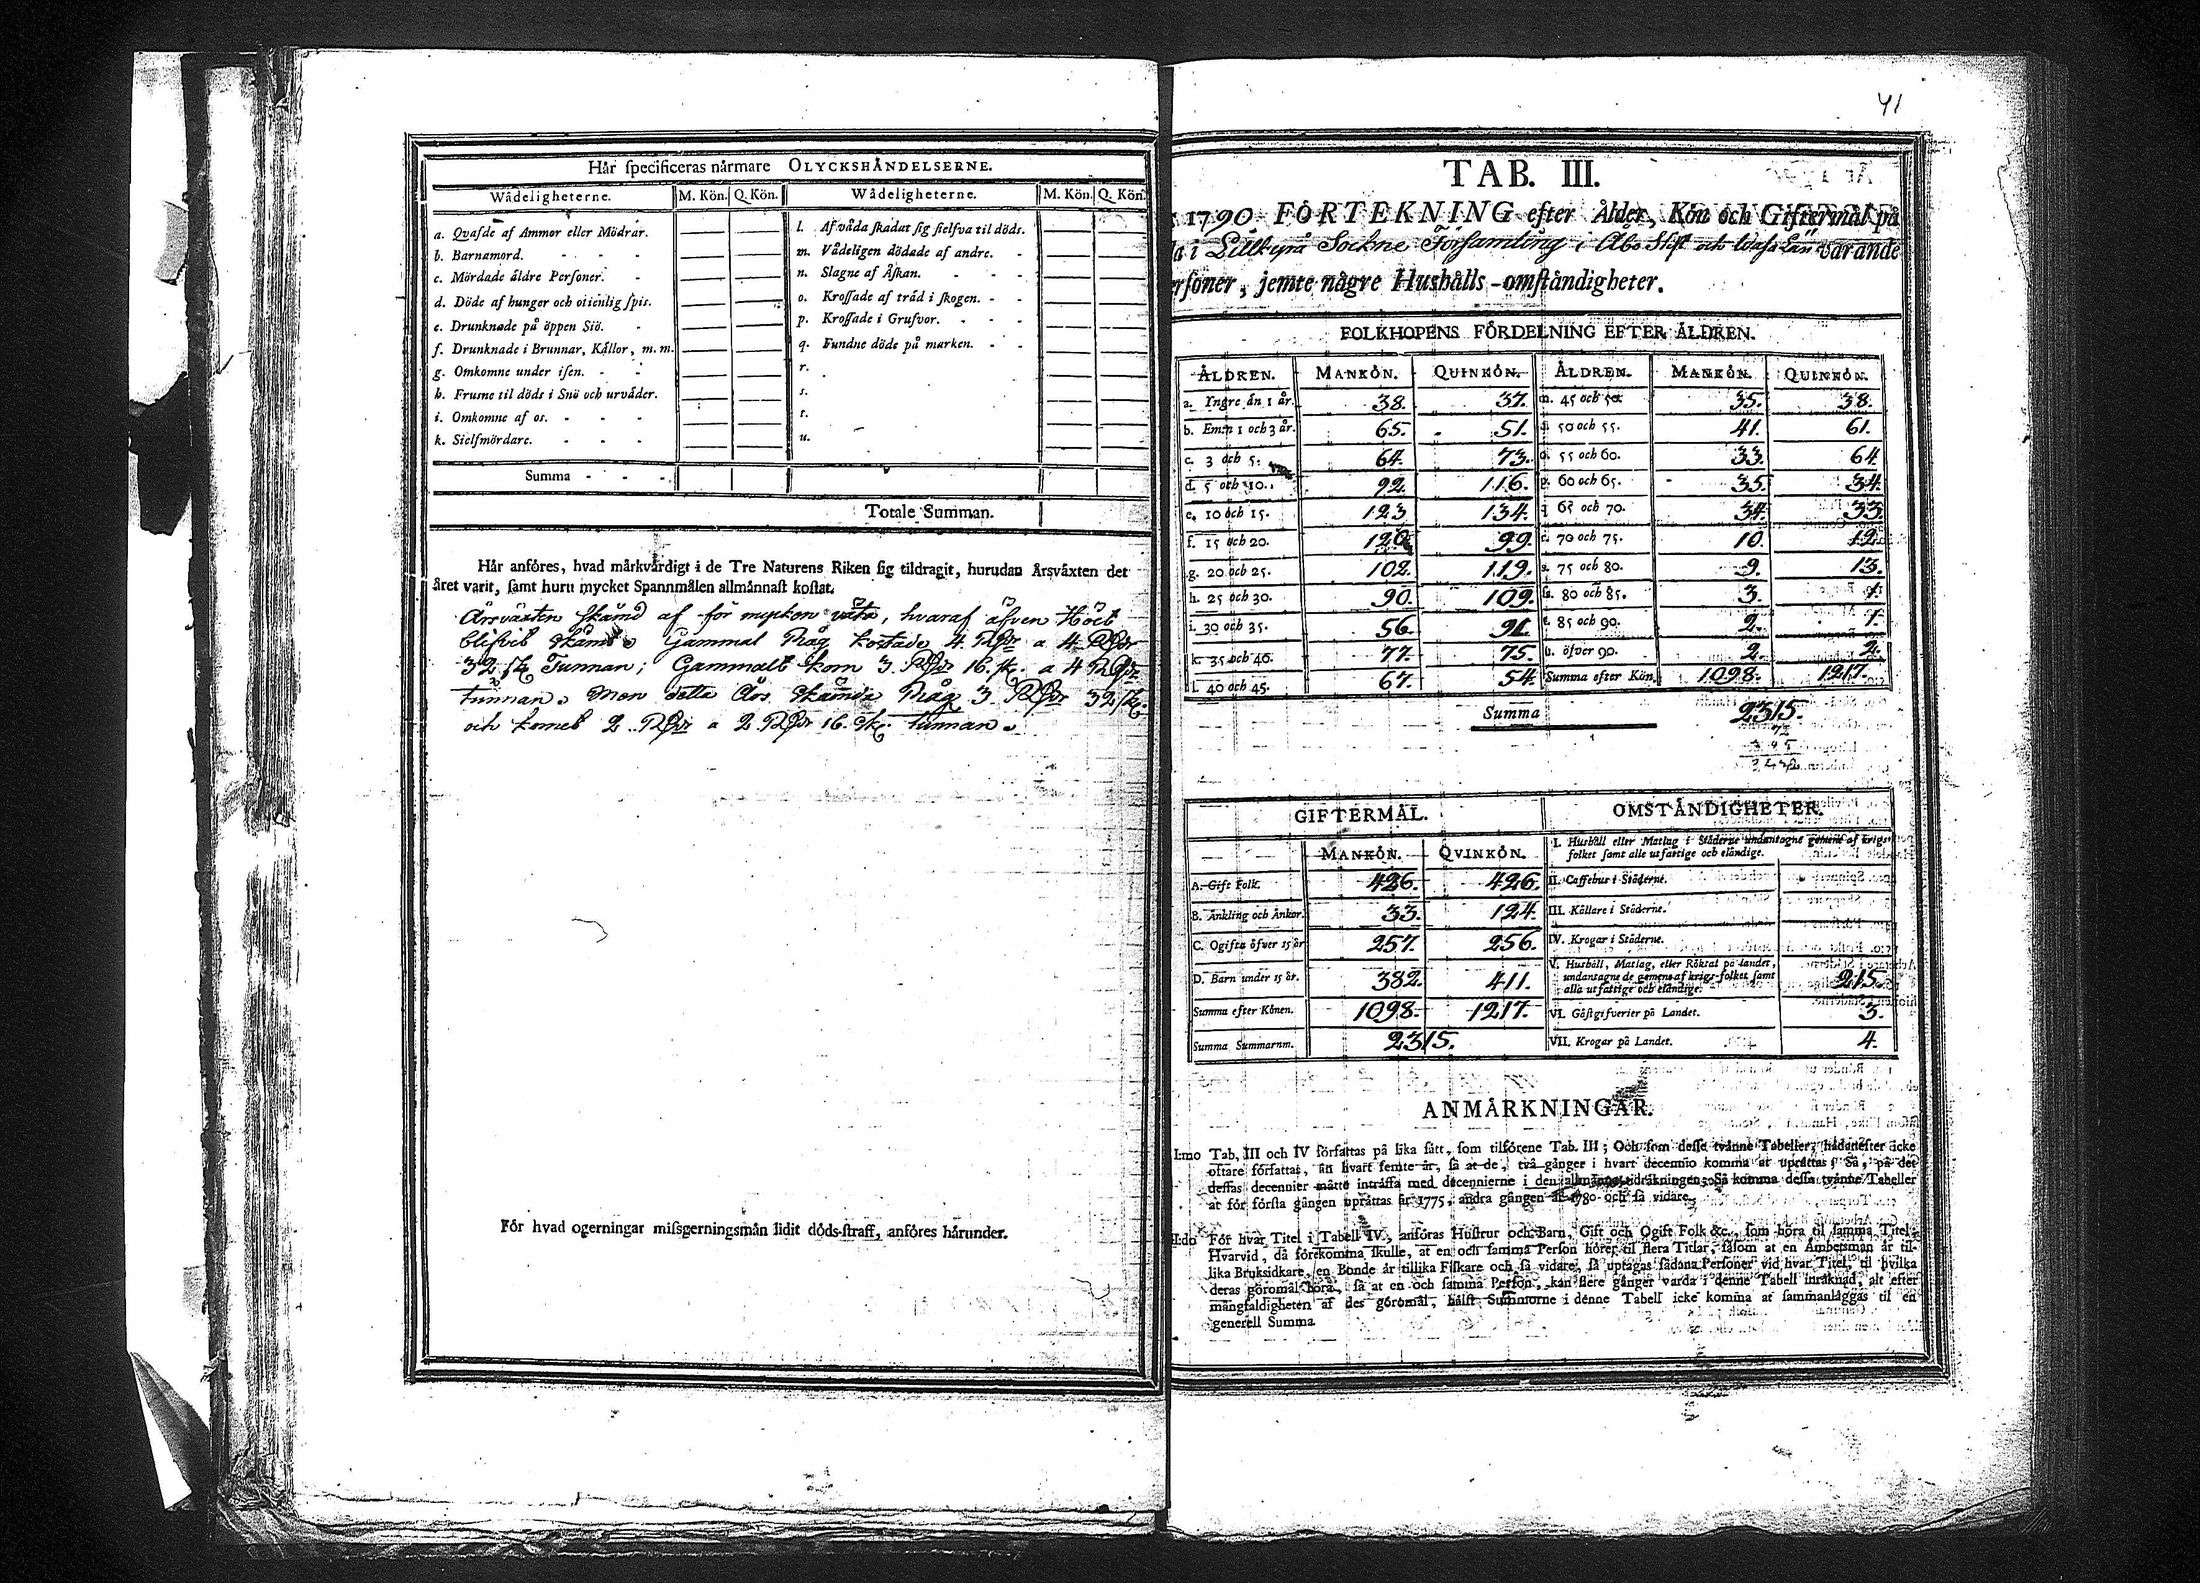 Hår ſpecificeras nårmare OLYCKSHÅNDELSERNE.
Wådeligheterne. M. Kön. Q. Kön. Wådeligheterne. M. Kön. Q. Kön.
a. Qvafde af Ammor eller Mödrar.
b. Barnamord.
c. Mördade äldre Perſoner.
d. Döde af hunger och otienlig ſpis.
e. Drunknade på öppen Siö.
f. Drunknade i Brunnar, Kållor, m. m.
g. Omkomne under iſen.
h. Fruſne til döds i Snö och urväder.
i. Omkomne af os.
k. Sielfmördare.
l. Af våda ſkadat ſig ſielfva til döds.
m. Vådeligen dödade af andre.
n. Slagne af Åſkan.
o. Kroſſade af träd i ſkogen.
p. Kroſſade i Grufvor.
q. Fundne döde på marken.
r.
s.
t.
u.
Summa
Totale Summan.
Hår anföres, hvad mårkvårdigt i de Tre Naturens Riken ſig tildragit, hurudan Årsvåxten det
året varit, ſamt huru mycket Spannmålen allmånnaſt koſtat.
Årsväxten skämd af för myckon väta, hvaraf äfven Höet
blifvit skämd. Gammal Råg kostade 4 Rdr a 4 Rdr
32 sk Tunnan; Gammalt korn 3. Rdr 16. sk. a 4 Rdr
tunnan. Men detta Års skämda Råg 3. Rdr 32 sk.
och kornet 2. Rdr a 2 Rdr 16. sk. tunnan.
För hvad ogerningar miſsgerningsmån lidit döds-ſtraff, anföres hårunder.
41
TAB. III.
1790. FÖRTEKNING efter Ålder, Kön och Giftermål på
i Lillkyrå Sockne Församling i Åbo Stift och Wasa Län varande
rſoner, jemte någre Hushålls-omſtåndigheter.
FOLKHOPENS FÖRDELNING EFTER ÅLDREN.
ÅLDREN. MANKÖN. QUINKÖN. ÅLDREN. MANKÖN. QUINKÖN.
a. Yngre än 1 år. 38. 37. m. 45 och 50. 35. 38.
b. Em:n 1 och 3 år. 65. 51. n. 50 och 55. 41. 61.
c. 3 och 5. 64. 73. o. 55 och 60. 33. 64
d. 5 och 10. 92. 116. p. 60 och 65. 35. 34.
e. 10 och 15. 123 134. q. 65 och 70. 34. 33.
f. 15 och 20. 120. 99. r. 70 och 75. 10. 12.
g. 20 och 25. 102. 119. s. 75 och 80. 9. 13.
h. 25 och 30. 90. 109. ſs. 80 och 85. 3. 1.
i. 30 och 35. 56. 91. t. 85 och 90. 2. 1.
k. 35 och 40. 77. 75. u. öfver 90. 2. 2.
l. 40 och 45. 67. 54. Summa efter Kön. 1098. 1217.
Summa 2315.
GIFTERMÅL. OMSTÅNDIGHETER.
MANKÖN. QVINKÖN.
A. Gift Folk. 426. 426.
B. Änkling och Änkor. 33. 124.
C. Ogifta öfver 15 år 257. 256.
D. Barn under 15 år. 382. 411.
Summa efter Könen. 1098. 1217.
Summa Summarum. 2315.
I. Hushåll eller Matlag i Städerne undantagne gemene af krigs-
folket ſamt alle utfattige och eländige.
II. Caffehus i Städerne.
III. Källare i Städerne.
IV. Krogar i Städerne.
V. Hushåll, Matlag, eller Röktal på landet,
undantagne de gemene af krigs-folket ſamt
alla utfattige och eländige. 215.
VI. Gäſtgifverier på Landet. 3.
VII. Krogar på Landet. 4.
ANMÅRKNINGAR.
I:mo Tab. III och IV författas på lika ſått, ſom tilförene Tab. III; Och ſom deſſe tvånne Tabeller, hådanefter icke
oftare författas, ån hvart femte år, ſå at de, två gånger i hvart decennio komma at uprättas; Så, på det
deſſas decennier måtte intråffa med decennierne i den allmånna tidråkningen; Så komma deſſa tvånne Tabeller
at för förſta gången uprättas år 1775, andra gången år 1780 och ſå vidare.
II:do För hvar Titel i Tabell IV., anföras Huſtrur och Barn, Gift och Ogift Folk &c., ſom höra til ſamma Titel;
Hvarvid, då förekomma ſkulle, at en och ſamma Perſon hörer til flera Titlar, ſåſom at en Ämbetsman år til-
lika Bruksidkare, en Bonde år tillika Fiſkare och ſå vidare, ſå uptagas ſådana Perſoner vid hvar Titel, til hvilka
deras göromål höra, ſå at en och ſamma Perſon, kan flere gånger varda i denne Tabell inråknad, alt efter
mångfaldigheten af des göromål, hålſt Summorne i denne Tabell icke komma at ſammanlåggas til en
generell Summa.